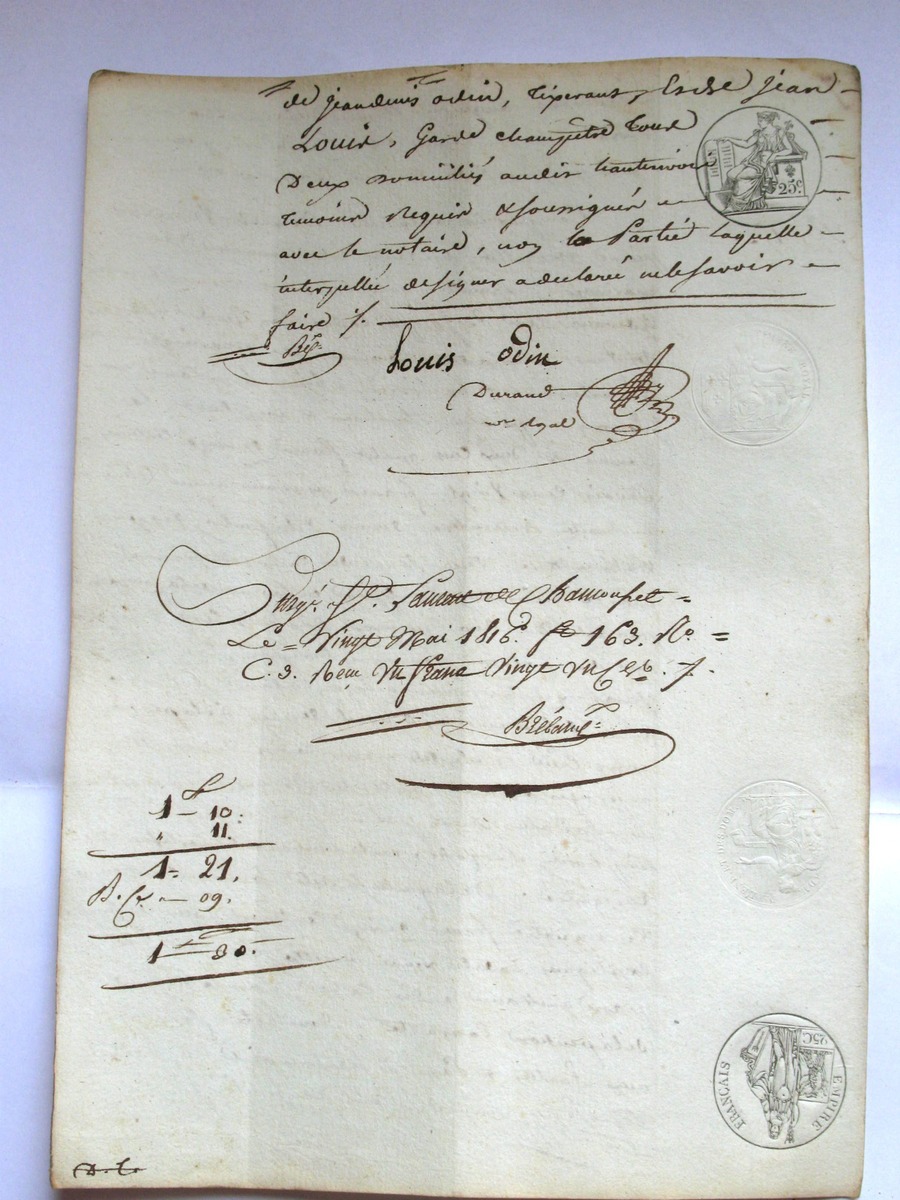 de jeandenis odin, Tixerant, Et de jean
Louis, Garde champêtre Tous
Deux domiciliés audit hauterivoire
Temoins Requis & soussignés
avec le notaire, non la Partie laquelle
interpellée de signer a declaré ne le savoir
faire ./.
Louis odin
Durand
nre royal
Enrgé. à St. Laurent de Chamousset =
Le = Vingt Mai 1816. fo 163. Ro. =
C. 3. Recu un franc Vingt un Ces. ./.
1 - 10:
" 11.
1 = 21.
09.
1 = 30.
25c.
25C
EMPIRE
FRANÇAIS